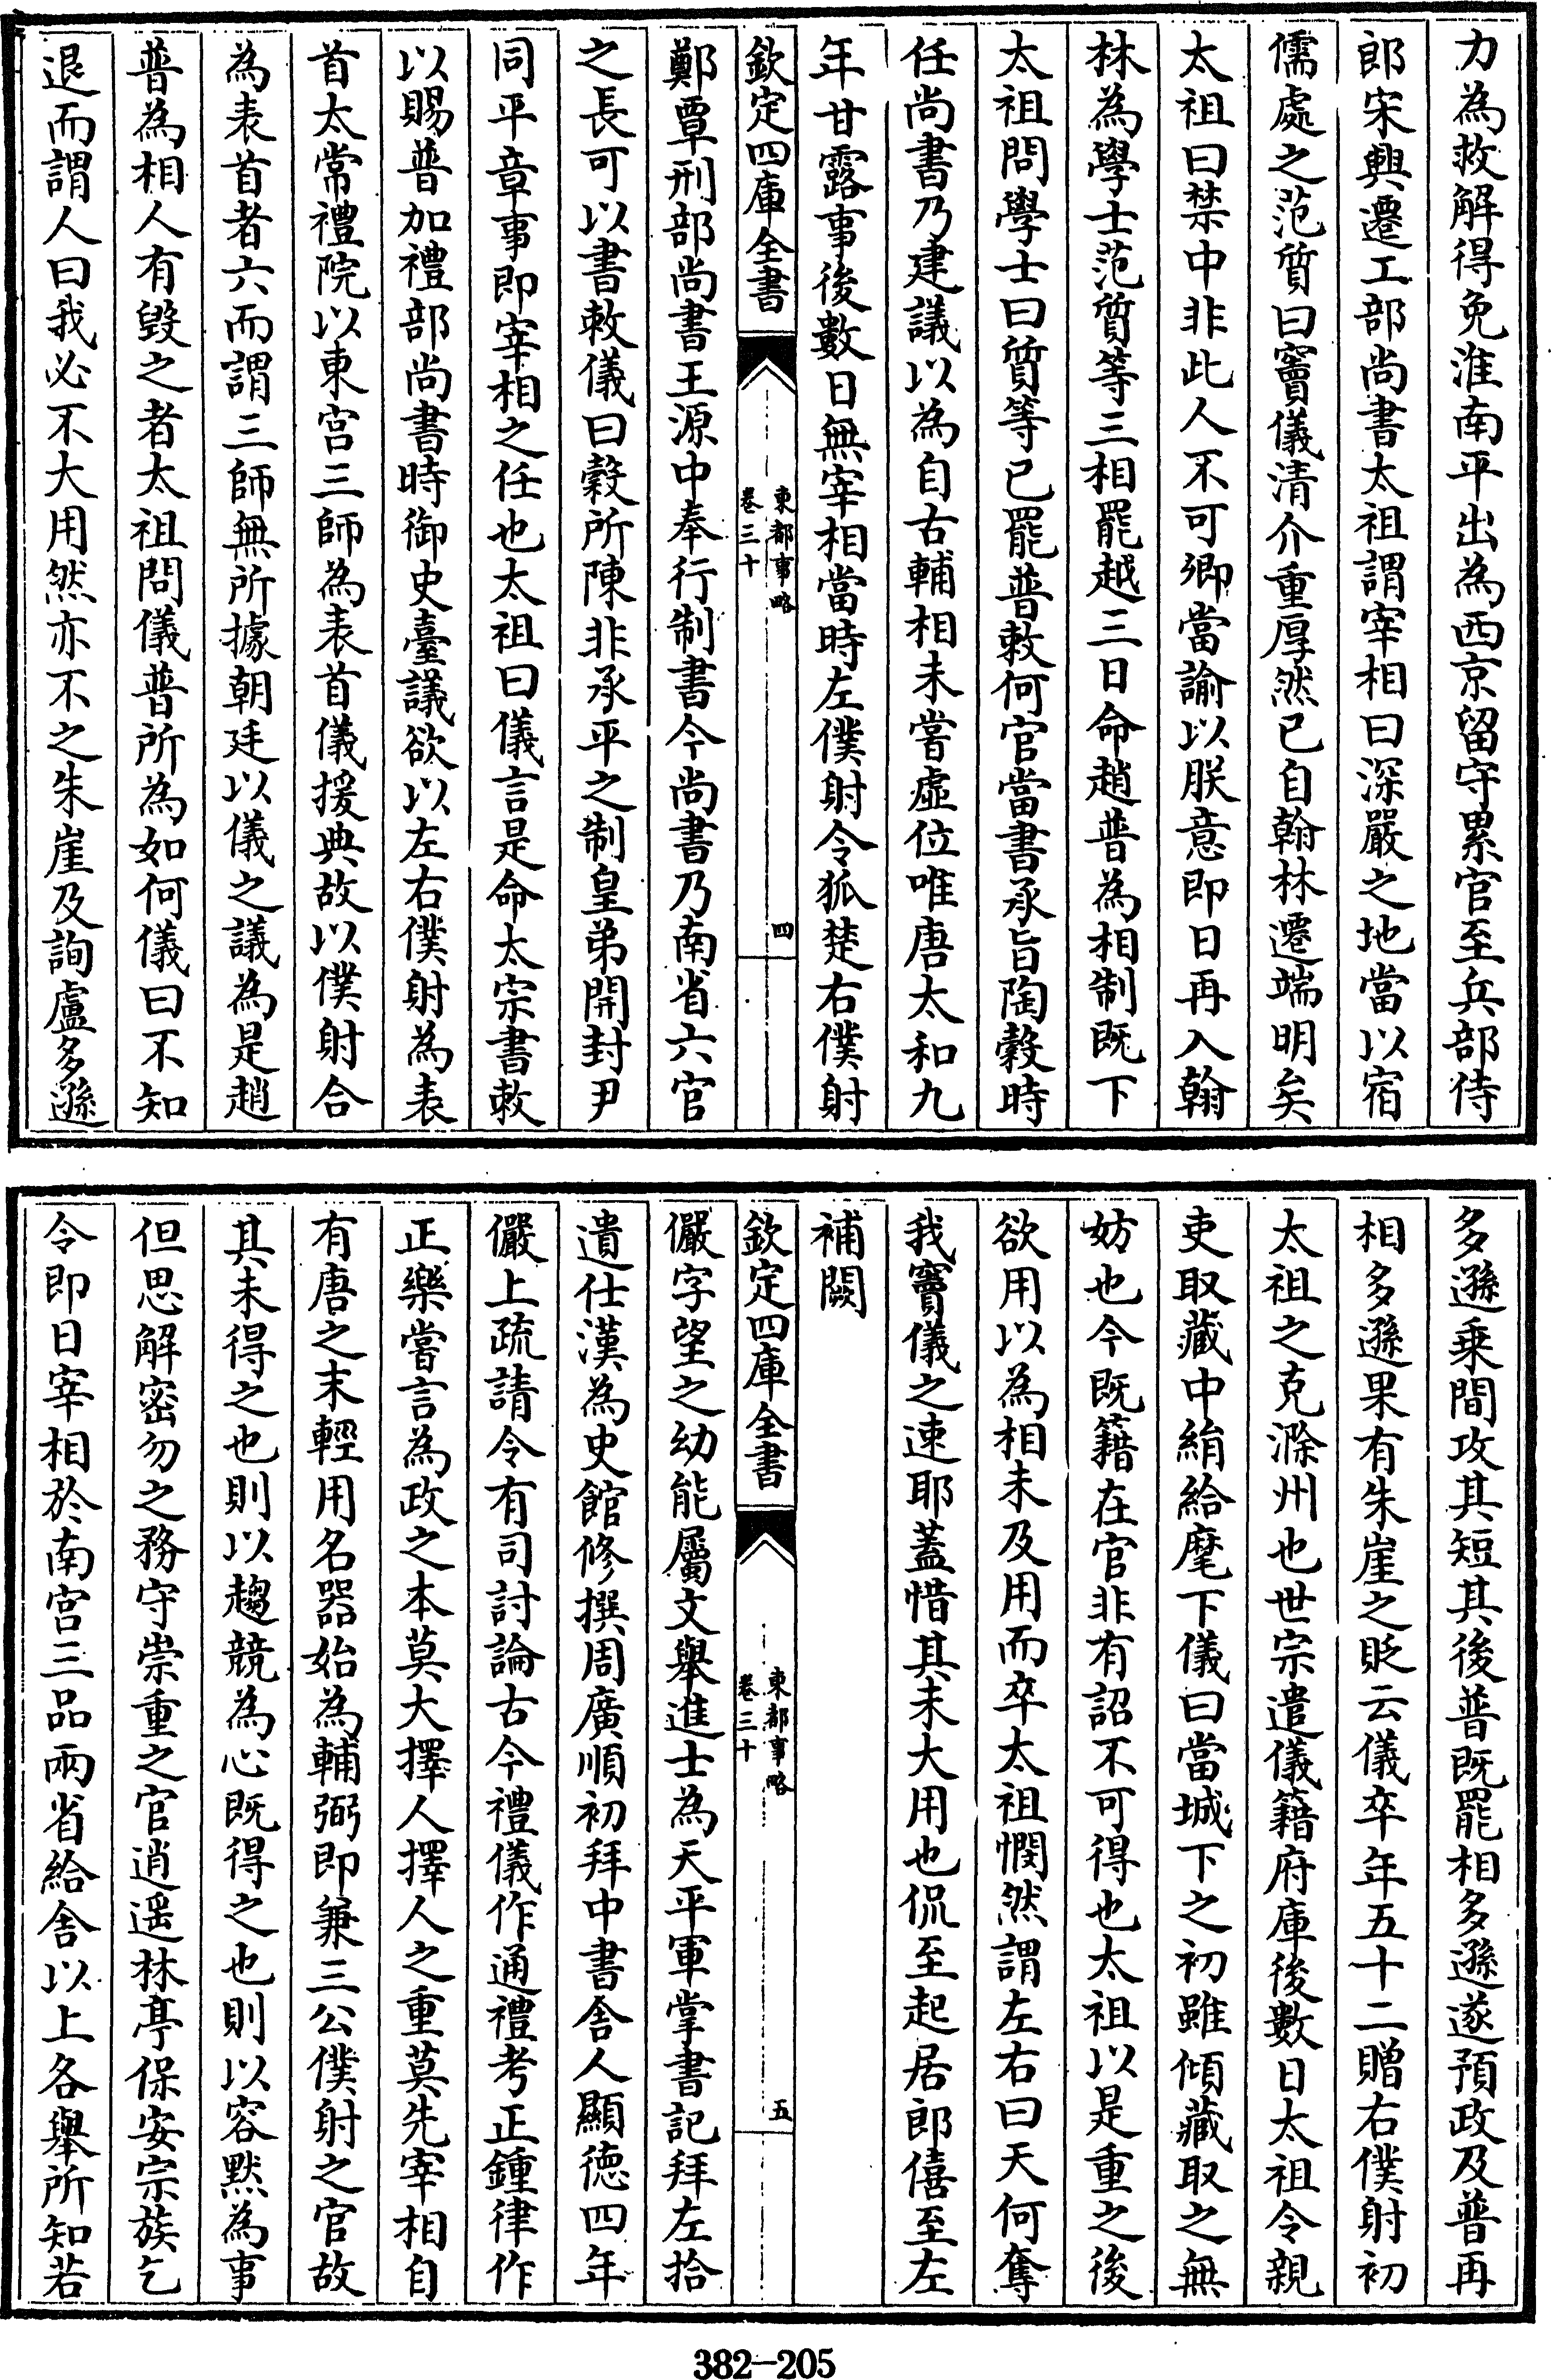 力為救解得免淮南平出為西京留守累官至兵部侍
郎宋興遷工部尚書太祖謂宰相曰深嚴之地當以宿
儒處之范質曰竇儀清介重厚然已自翰林遷端明矣
太祖曰禁中非此人不可卿當諭以朕意即日再入翰
林為學士范質等三相罷越三日命趙普為相制既下
太祖問學士曰質等已罷普敕何官當書承旨陶穀時
任尚書乃建議以為自古輔相未嘗虛位唯唐太和九
年甘露事後數日無宰相當時左僕射令狐楚右僕射
欽定四庫全書
東都事略
卷三十
四
鄭覃刑部尚書王源中奉行制書今尚書乃南省六官
之長可以書敕儀曰穀所陳非承平之制皇弟開封尹
同平章事即宰相之任也太祖曰儀言是命太宗書敕
以賜普加禮部尚書時御史臺議欲以左右僕射為表
首太常禮院以東宮三師為表首儀援典故以僕射合
為表首者六而謂三師無所據朝廷以儀之議為是趙
普為相人有毀之者太祖問儀普所為如何儀曰不知
退而謂人曰我必不大用然亦不之朱崖及詢盧多遜
多遜乗間攻其短其後普既罷相多遜遂預政及普再
相多遜果有朱崖之貶云儀卒年五十二贈右僕射初
太祖之克滁州也世宗遣儀籍府庫後數日太祖令親
吏取藏中絹給麾下儀曰當城下之初雖傾藏取之無
妨也今既籍在官非有詔不可得也太祖以是重之後
欲用以為相未及用而卒太祖憫然謂左右曰天何奪
我竇儀之速耶蓋惜其未大用也侃至起居郎僖至左
補闕
欽定四庫全書
東都事略
卷三十
五
儼字望之幼能屬文舉進士為天平軍掌書記拜左拾
遺仕漢為史館修撰周廣順初拜中書舍人顯德四年
儼上疏請令有司討論古今禮儀作通禮考正鍾律作
正樂嘗言為政之本莫大擇人擇人之重莫先宰相自
有唐之末輕用名器始為輔弼即兼三公僕射之官故
其未得之也則以趨競為心既得之也則以容默為事
但思解密勿之務守崇重之官逍遥林亭保安宗族乞
令即日宰相於南宮三品兩省給舍以上各舉所知若
382-205